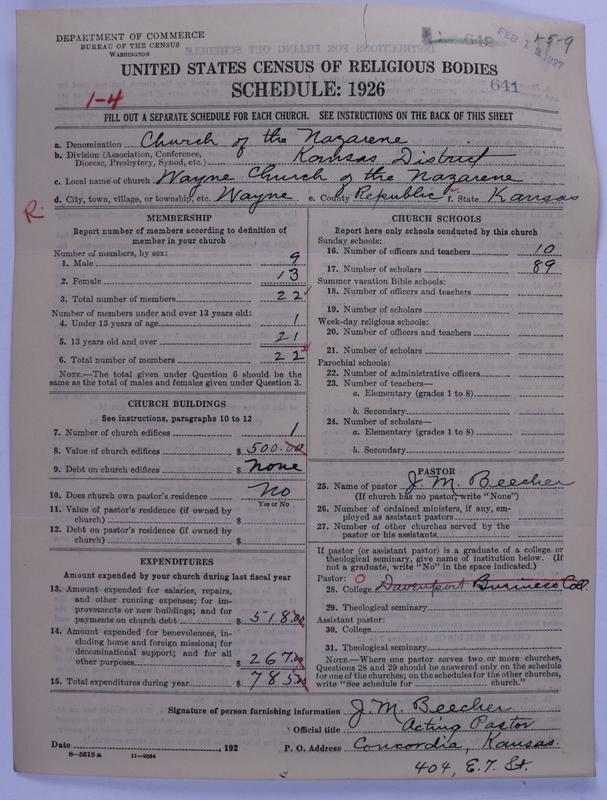 DEPARTMENT OF COMMERCE
BUREAU OF THE CENSUS
WASHINGTON
642
FEB 12 1927
1-5-9
UNITED STATES CENSUS OF RELIGIOUS BODIES
SCHEDULE: 1926
641
1-4
FILL OUT A SEPARATE SCHEDULE FOR EACH CHURCH. SEE INSTRUCTIONS ON THE BACK OF THIS SHEET
a. Denomination Church of the Nazarene
b. Division (Association, Conference, Diocese, Presbytery, Synod, etc.) Kansas District
c. Local name of church Wayne Church of the Nazarene
d. City, town, village, or township, etc. Wayne e. County Republic f. State Kansas
R
MEMBERSHIP
Report number of members according to definition of
member in your church
Number of members, by sex:
1. Male 9
2. Female 13
3. Total number of members 22
Number of members under and over 13 years old:
4. Under 13 years of age 1
5. 13 years old and over 21
6. Total number of members 22
NOTE.—The total given under Question 6 should be the
same as the total of males and females given under Question 3.
CHURCH BUILDINGS
See instructions, paragraphs 10 to 12
7. Number of church edifices 1
8. Value of church edifices $ 500.00
9. Debt on church edifices $ None
10. Does church own pastor's residence No
Yes or No
11. Value of pastor's residence (if owned by
church) $
12. Debt on pastor's residence (if owned by
church) $
EXPENDITURES
Amount expended by your church during last fiscal year
13. Amount expended for salaries, repairs,
and other running expenses; for im-
provements or new buildings; and for
payments on church debt $ 518.00
14. Amount expended for benevolences, in-
cluding home and foreign missions; for
denominational support; and for all
other purposes $ 267.00
15. Total expenditures during year $ 785.00
CHURCH SCHOOLS
Report here only schools conducted by this church
Sunday schools:
16. Number of officers and teachers 10
17. Number of scholars 89
Summer vacation Bible schools:
18. Number of officers and teachers
19. Number of scholars
Week-day religious schools:
20. Number of officers and teachers
21. Number of scholars
Parochial schools:
22. Number of administrative officers
23. Number of teachers—
a. Elementary (grades 1 to 8)
b. Secondary
24. Number of scholars—
a. Elementary (grades 1 to 8)
b. Secondary
PASTOR
25. Name of pastor J. M. Beecher
(If church has no pastor, write "None")
26. Number of ordained ministers, if any, em-
ployed as assistant pastors
27. Number of other churches served by the
pastor or his assistants
If pastor (or assistant pastor) is a graduate of a college or
theological seminary, give name of institution below. (If
not a graduate, write "No" in the space indicated.)
Pastor: O
28. College Davenport Business Coll.
29. Theological seminary
Assistant pastor:
30. College
31. Theological seminary
NOTE.—Where one pastor serves two or more churches,
Questions 28 and 29 should be answered only on the schedule
for one of the churches; on the schedules for the other churches,
write "See schedule for church."
Signature of person furnishing information J. M. Beecher
Official title Acting Pastor
Date , 192 P. O. Address Concordia, Kansas.
8—5518a 11—9084
404, E. 7. St.